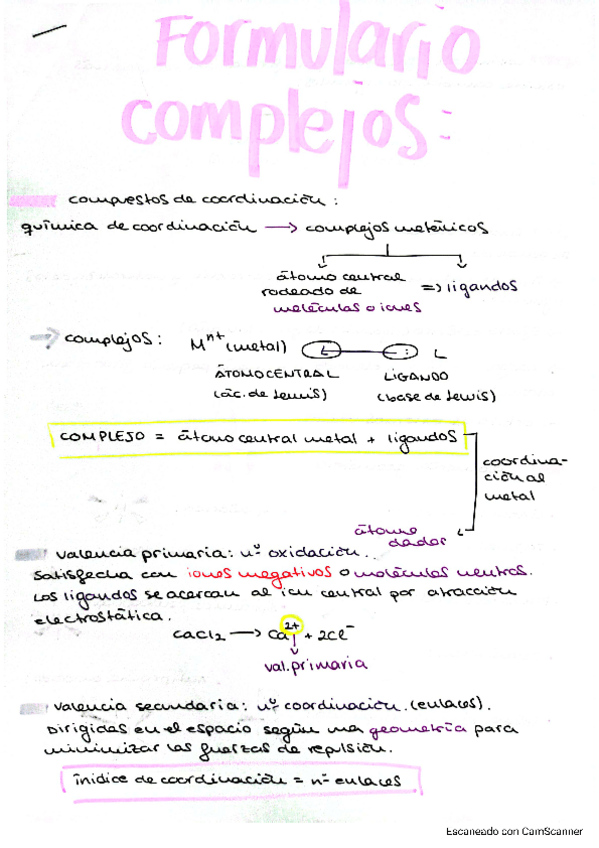 Formulario
complejos:
compuestos de coordinación:
química de coordinación → complejos metálicos
átomo central
rodeado de => ligandos
moléculas o iones
complejos: Mⁿ⁺ (metal) L : L
ÁTOMO CENTRAL LIGANDO
(ác. de Lewis) (base de Lewis)
COMPLEJO = átomo central metal + ligandos
coordina-
ción al
metal
átomo
dador
valencia primaria: nº oxidación.
satisfecha con iones negativos o moléculas neutras.
Los ligandos se acercan al ion central por atracción
electrostática.
CaCl₂ → Ca²⁺ + 2Cl⁻
val. primaria
valencia secundaria: nº coordinación. (enlaces).
Dirigidas en el espacio según una geometría para
minimizar las fuerzas de repulsión.
ínidice de coordinación = nº enlaces
Escaneado con CamScanner